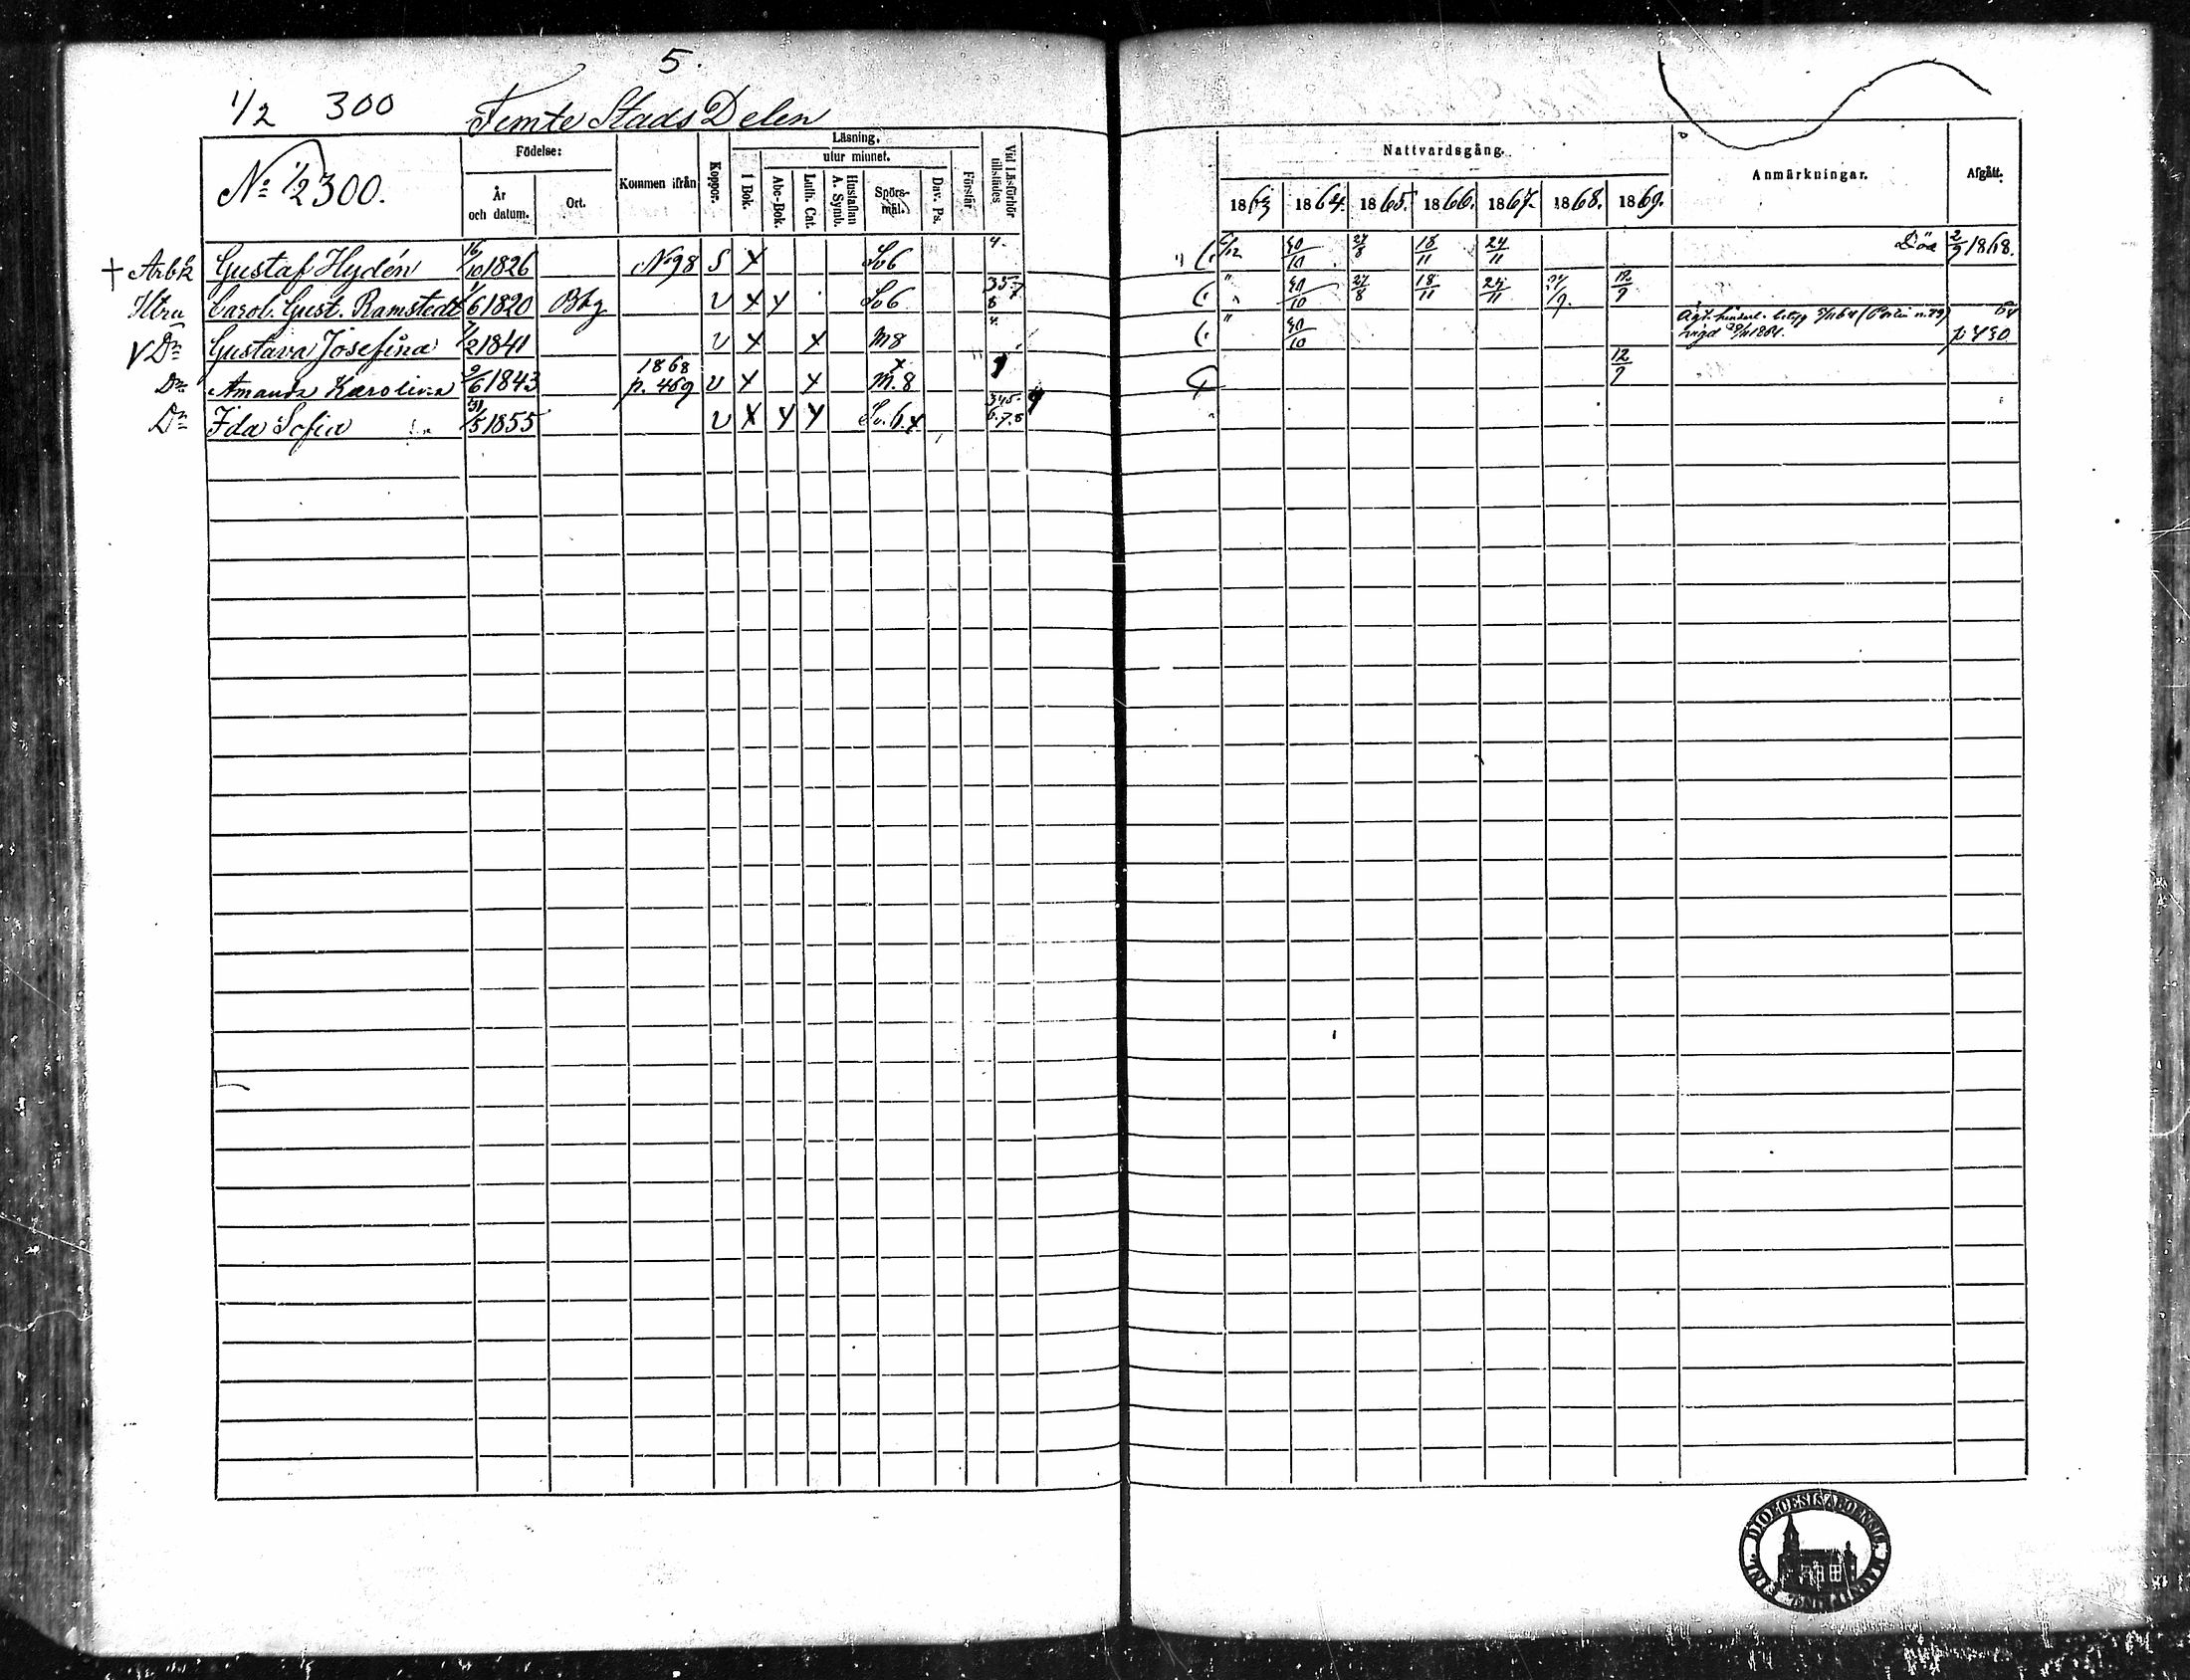 5.
1/2 300 Femte Stads Delen
No 1/2 300.
Födelse:
År och datum.
Ort.
Kommen ifrån
Koppor.
Läsning,
utur minnet.
I Bok.
Abc-Bok.
Luth. Cat.
Hustaflan A. Symb.
Spörsmål.
Dav. Ps.
Förstår
Vid Läsförhör tillstädes
Nattvardsgång.
1863 1864. 1865. 1866. 1867. 1868. 1869.
Anmärkningar.
Afgått.
+ Arbk Gustaf Hydén 16/10 1826 No 98 S X Sv 6 4. 6/12 30/10 27/8 18/11 24/11 Död 2/9 1868.
Htru Carol. Gust. Ramstedt 1/6 1820 Bbg U X Y Sv 6 35.7 8 " 30/10 27/8 18/11 24/11 12/9
V Dr Gustava Josefina 7/2 1841 U X X M8 4. " 30/10 vigd 1864. 64 p 430
Dr Amanda Karolina 9/6 1843 1868 p. 469 U X X M. 8 12/9
Dr Ida Sofia 31/5 1855 U X Y Y Sv. 6. 345. 6.7.8